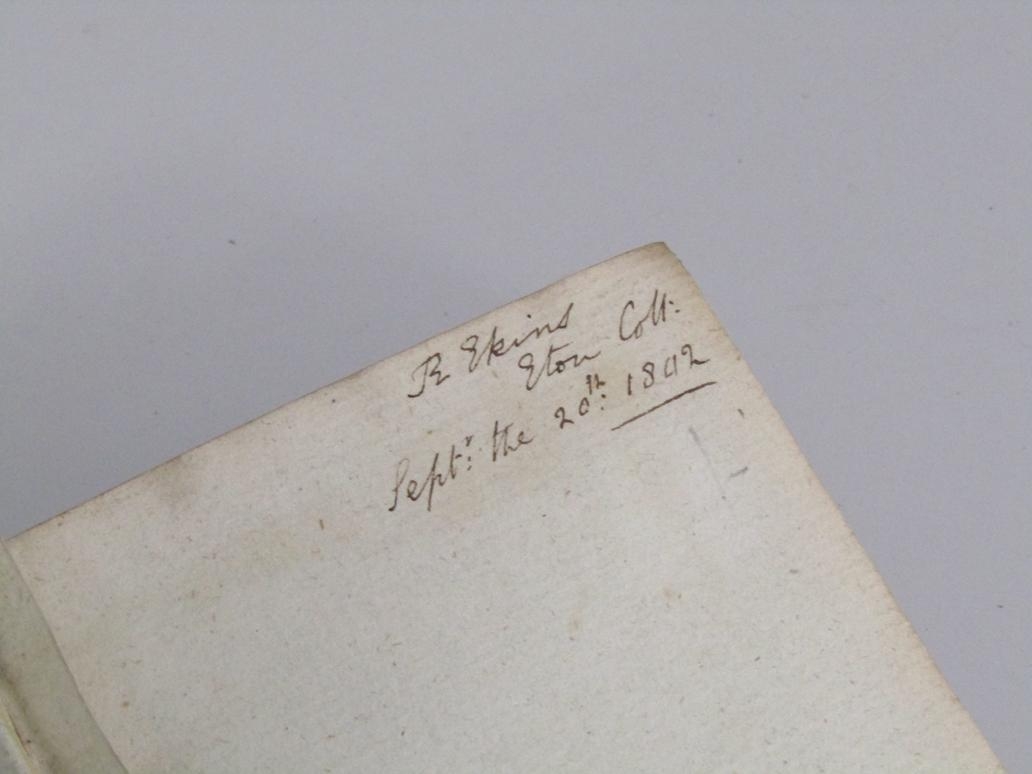 R Ekins
Eton Coll:
Septr: the 20th: 1802